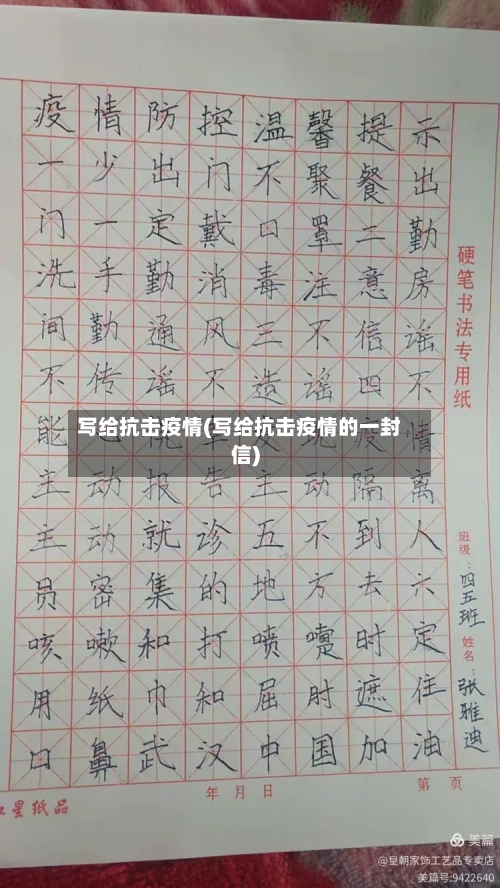 疫情防控温馨提示
一少出门不聚餐出
门一定戴口罩二勤
洗手勤消毒注意房
间勤通风三不信谣
不传谣不造谣四不
能 疫情
写给抗击疫情(写给抗击疫情的一封
信)
主动报告主动隔离
主动就诊五不到人
员密集的地方去六
咳嗽和打喷嚏时定
用纸巾和屈肘遮住
口鼻武汉中国加油
硬笔书法专用纸
班级：四五班 姓名：张雅迪
年 月 日 第 页
星纸品
美篇
@皇朝家饰工艺品专卖店
美篇号:9422640